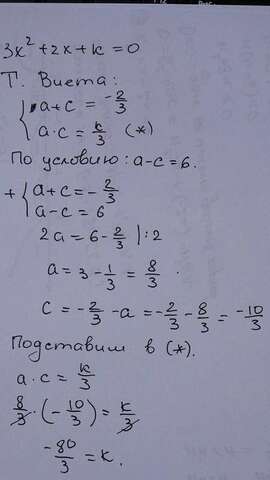 3x² + 2x + k = 0
Т. Виета:
{ a + c = -2/3
a · c = k/3 (*)
По условию: a - c = 6.
+ { a + c = -2/3
a - c = 6
2a = 6 - 2/3 | : 2
a = 3 - 1/3 = 8/3 .
c = -2/3 - a = -2/3 - 8/3 = -10/3
Подставим в (*).
a · c = k/3
8/3 · (-10/3) = k/3
-80/3 = k.